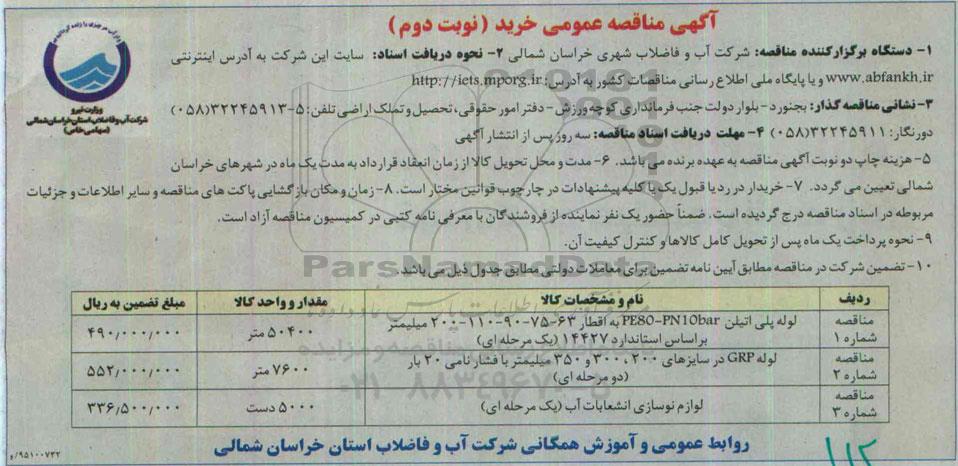 آگهی مناقصه عمومی خرید (نوبت دوم)
۱- دستگاه برگزارکننده مناقصه: شرکت آب و فاضلاب شهری خراسان شمالی ۲- نحوه دریافت اسناد: سایت این شرکت به آدرس اینترنتی
www.abfankh.ir و یا پایگاه ملی اطلاع رسانی مناقصات کشور به آدرس: http://iets.mporg.ir
۳- نشانی مناقصه گذار: بجنورد - بلوار دولت جنب فرمانداری کوچه ورزش - دفتر امور حقوقی، تحصیل و تملک اراضی تلفن: ۵-۳۲۲۴۵۹۱۳ (۰۵۸)
دورنگار: ۳۲۲۴۵۹۱۱ (۰۵۸) ۴- مهلت دریافت اسناد مناقصه: سه روز پس از انتشار آگهی
۵- هزینه چاپ دو نوبت آگهی مناقصه به عهده برنده می باشد. ۶- مدت و محل تحویل کالا از زمان انعقاد قرارداد به مدت یک ماه در شهرهای خراسان
شمالی تعیین می گردد. ۷- خریدار در رد یا قبول یک یا کلیه پیشنهادات در چارچوب قوانین مختار است. ۸- زمان و مکان بازگشایی پاکت های مناقصه و سایر اطلاعات و جزئیات
مربوطه در اسناد مناقصه درج گردیده است. ضمناً حضور یک نفر نماینده از فروشندگان با معرفی نامه کتبی در کمیسیون مناقصه آزاد است.
۹- نحوه پرداخت یک ماه پس از تحویل کامل کالاها و کنترل کیفیت آن.
۱۰- تضمین شرکت در مناقصه مطابق آیین نامه تضمین برای معاملات دولتی مطابق جدول ذیل می باشد.
وزارت نیرو
شرکت آب و فاضلاب استان خراسان شمالی
(سهامی خاص)
ParsNamadData
۰۲۱-۸۸۳۴۹۶۷۰-۵
ردیف نام و مشخصات کالا مقدار و واحد کالا مبلغ تضمین به ریال
مناقصه شماره ۱ لوله پلی اتیلن PE80-PN10bar به اقطار ۶۳-۷۵-۹۰-۱۱۰-۲۰۰ میلیمتر ۵۰۴۰۰ متر ۴۹۰/۰۰۰/۰۰۰
براساس استاندارد ۱۴۴۲۷ (یک مرحله ای)
مناقصه شماره ۲ لوله GRP در سایزهای ۲۰۰، ۳۰۰ و ۳۵۰ میلیمتر با فشار نامی ۲۰ بار ۷۶۰۰ متر ۵۵۲/۰۰۰/۰۰۰
(دو مرحله ای)
مناقصه شماره ۳ لوازم نوسازی انشعابات آب (یک مرحله ای) ۵۰۰۰ دست ۳۳۶/۵۰۰/۰۰۰
روابط عمومی و آموزش همگانی شرکت آب و فاضلاب استان خراسان شمالی
۹۵۱۰۰۷۳۲/و